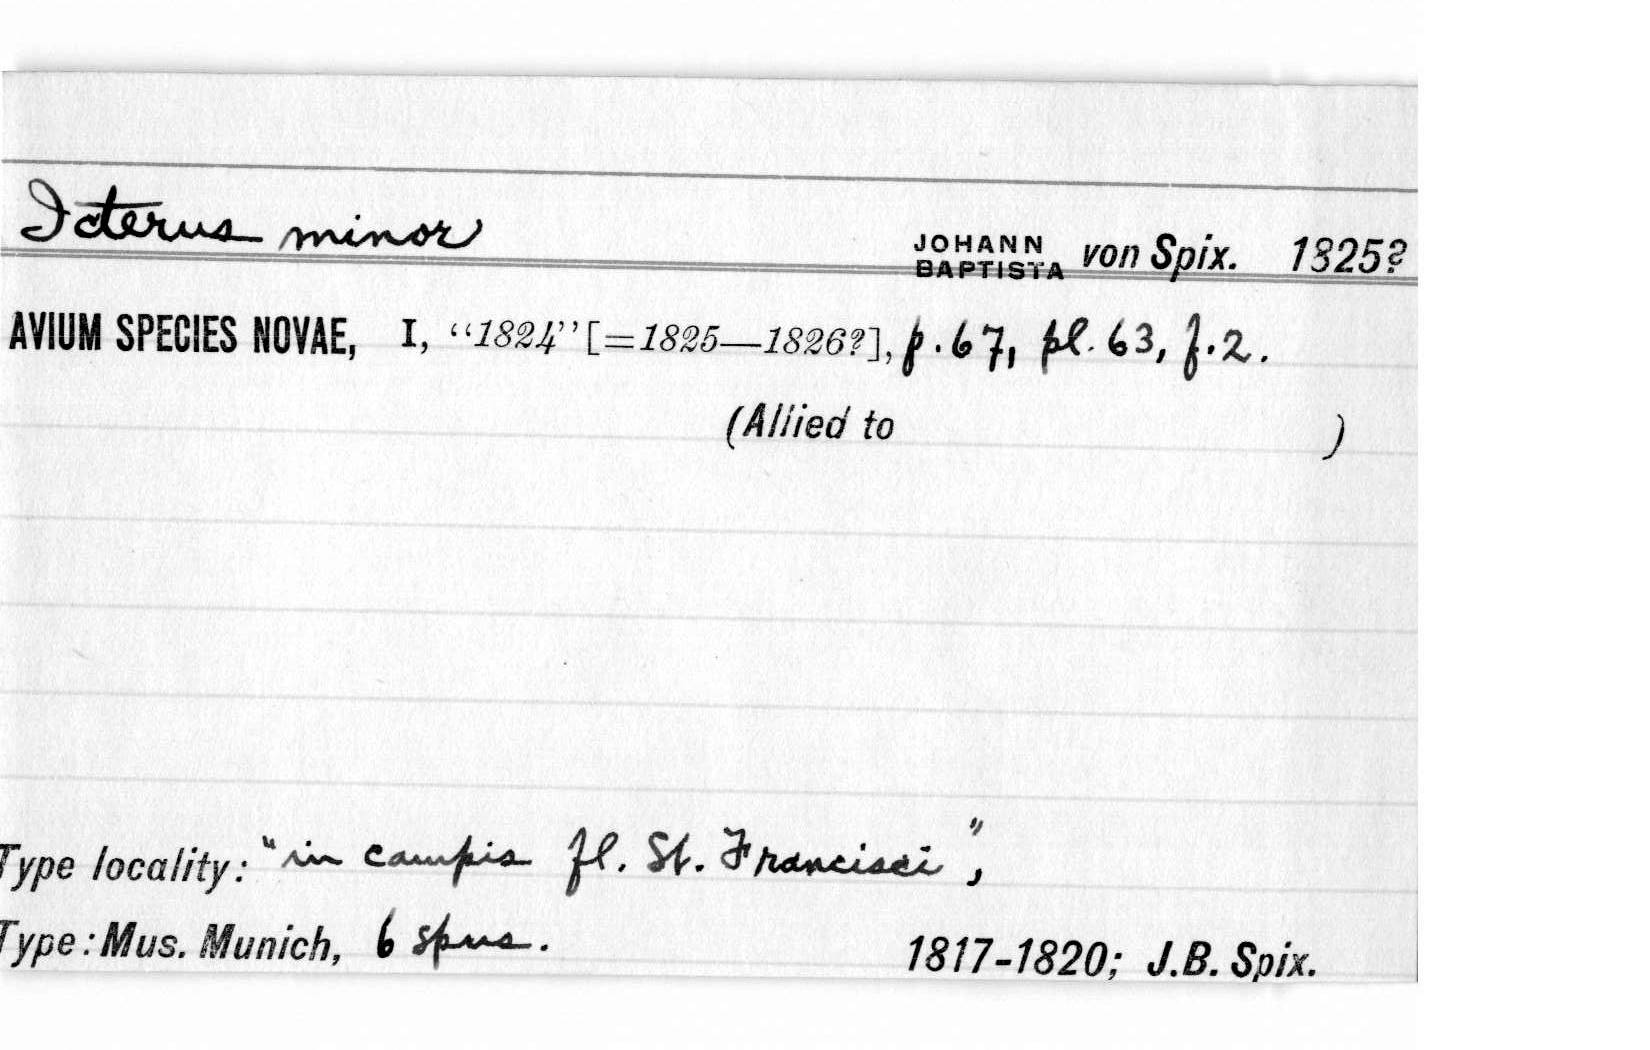 Icterus minor JOHANN BAPTISTA von Spix. 1825?
AVIUM SPECIES NOVAE, I, “1824” [=1825—1826?], p. 67, pl. 63, f. 2.
(Allied to )
Type locality: "in campis fl. St. Francisci",
Type: Mus. Munich, 6 spns. 1817-1820; J.B. Spix.